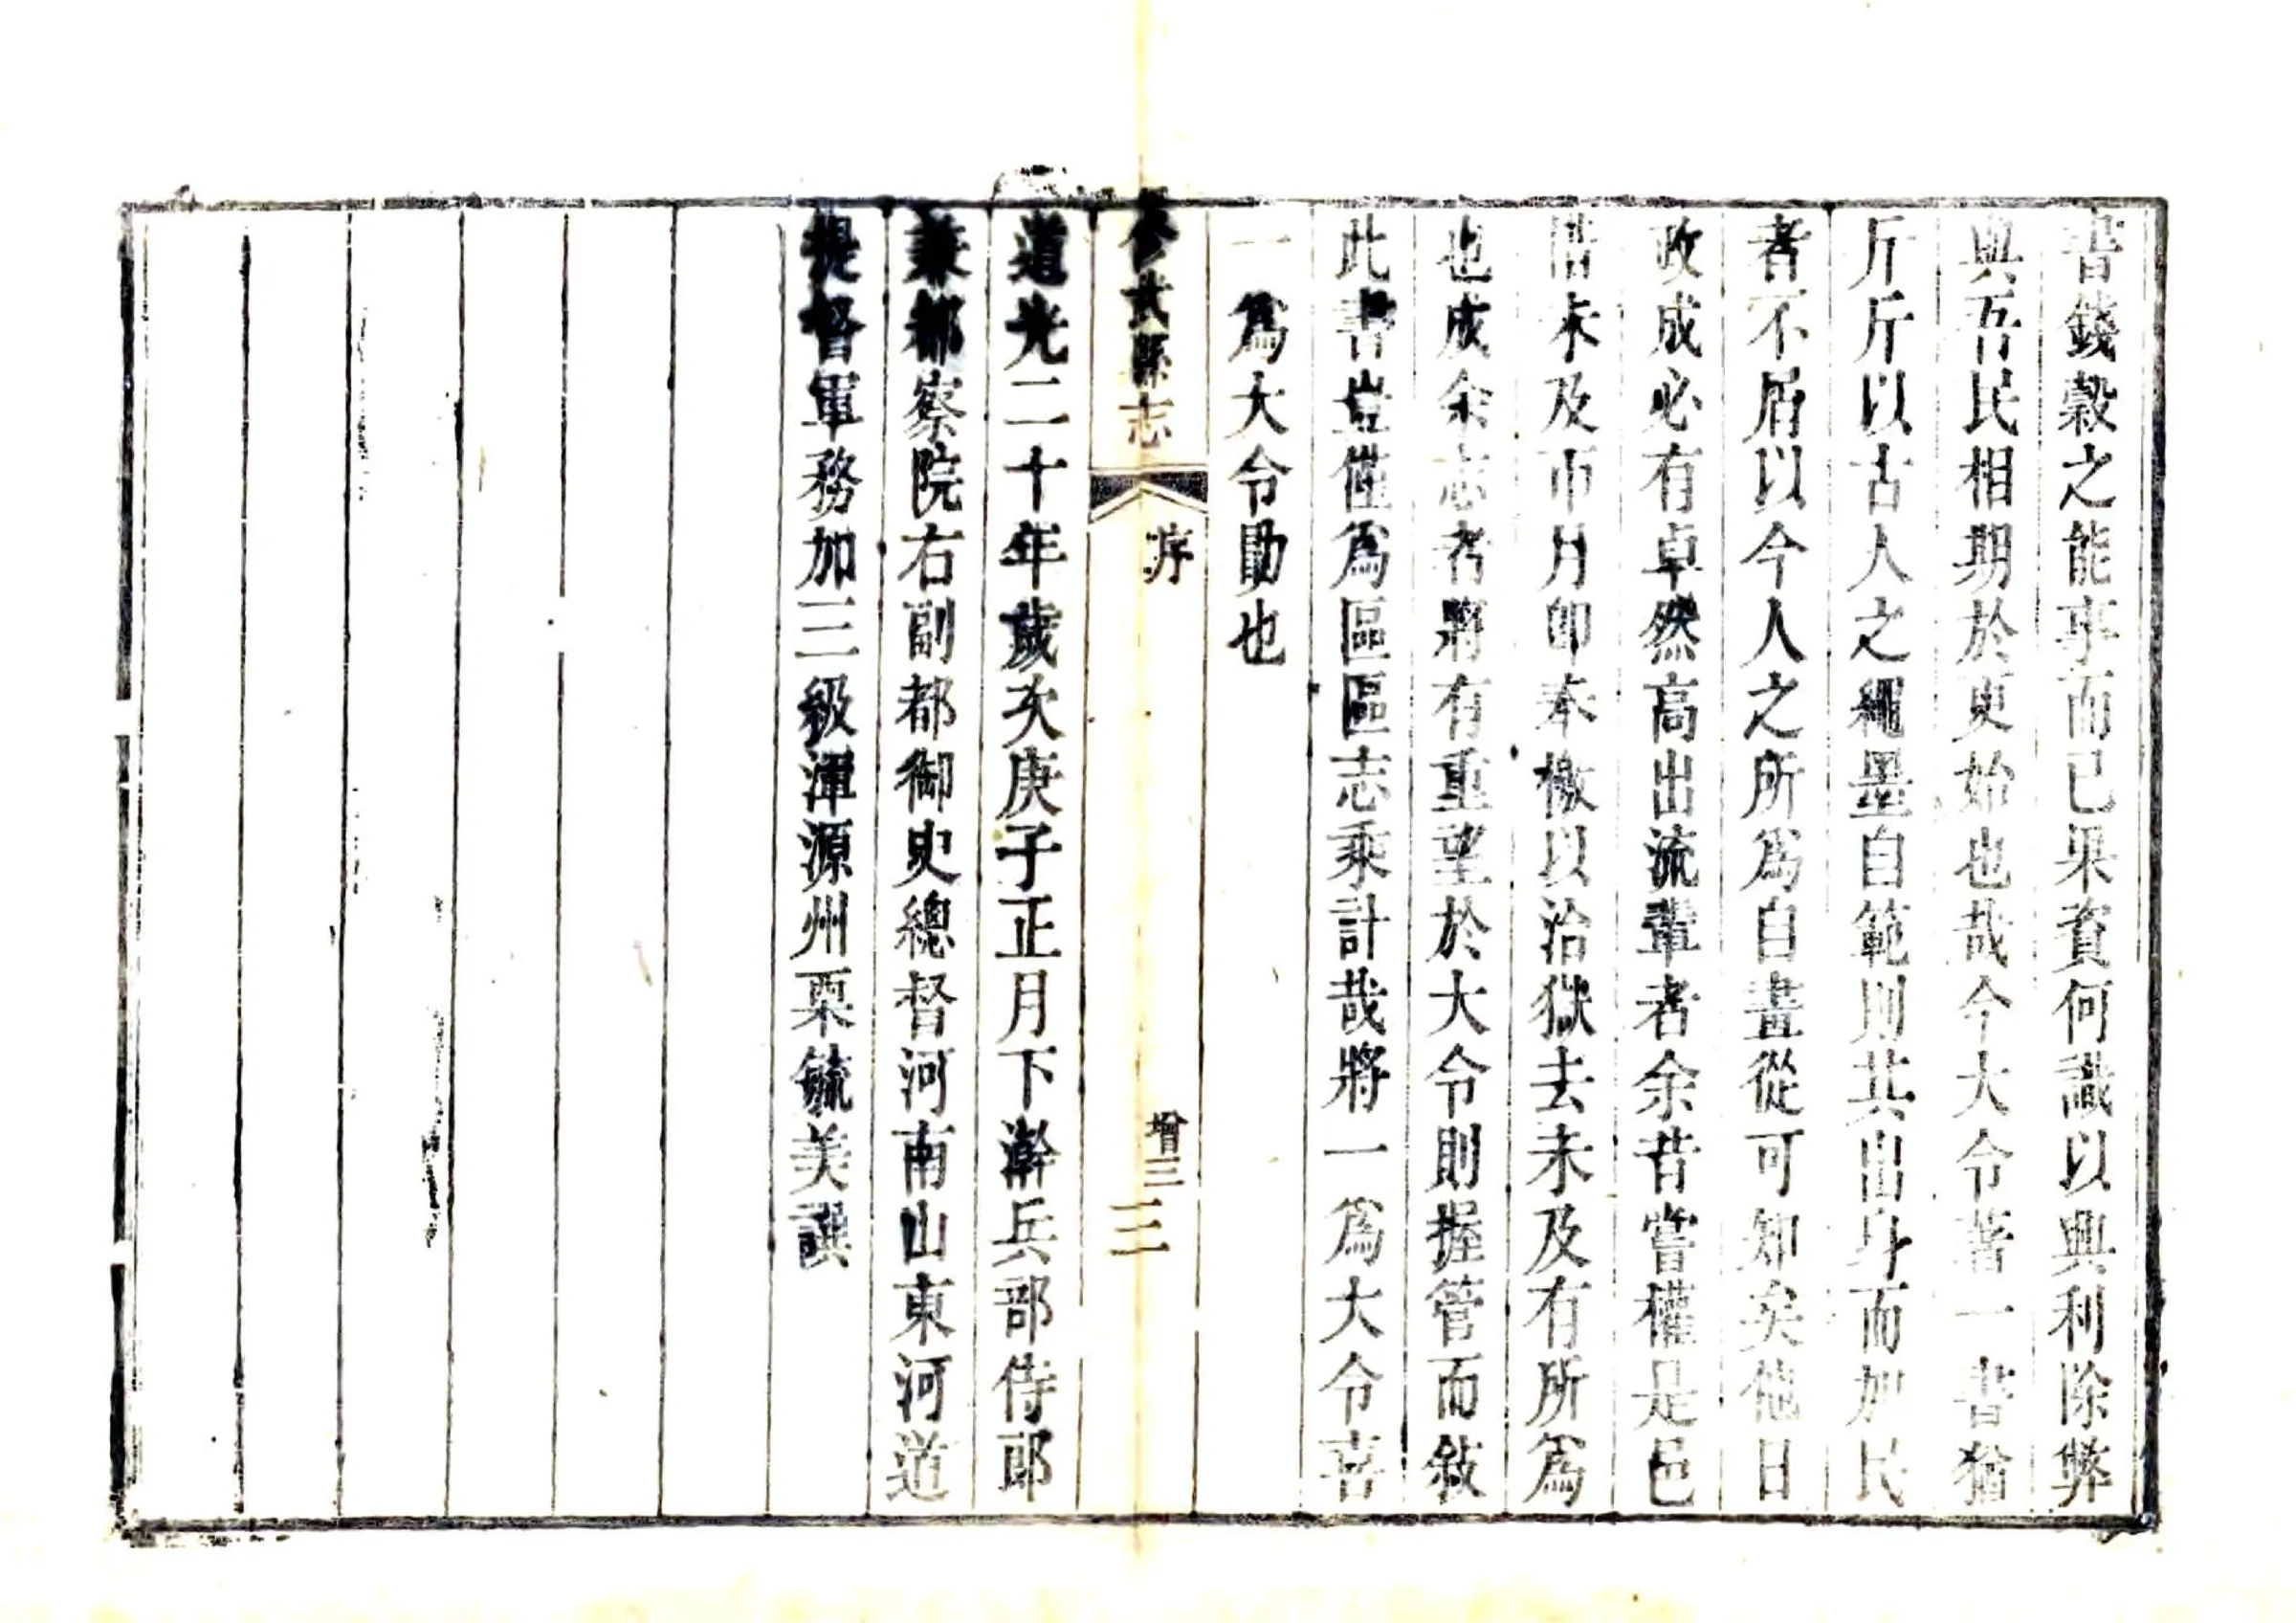 書錢榖之能事而已果資何識以興利除弊
與吾民相期於更始也哉今大令著一書猶
斤斤以古人之繩墨自範則其出身而加民
者不屑以今人之所爲自畫從可知矣他日
政成必有卓然高出流輩者余昔嘗權是邑
惜未及帀月卽奉檄以治獄去未及有所爲
也成余志者將有重望於大令則握管而敘
此書豈僅爲區區志乘計哉將一爲大令喜
一爲大令勖也
修武縣志 序 增三 三
道光二十年歲次庚子正月下澣兵部侍郎
兼都察院右副都御史總督河南山東河道
提督軍務加三級渾源州栗毓美譔